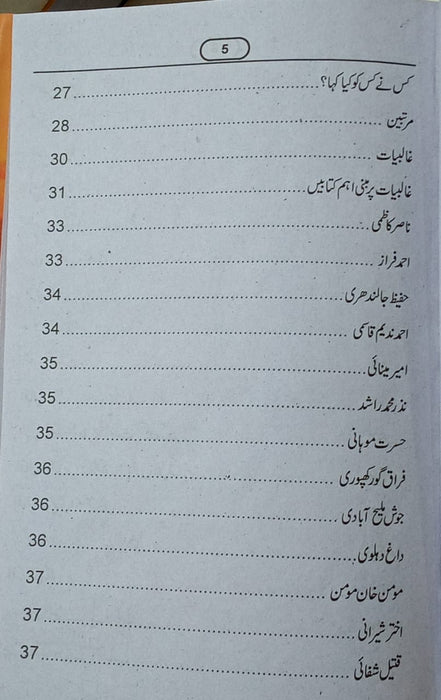 5
کس نے کس کو کیا کہا؟ 27
مرتبین 28
غالبیات 30
غالبیات پر مبنی اہم کتابیں 31
ناصر کاظمی 33
احمد فراز 33
حفیظ جالندھری 34
احمد ندیم قاسمی 34
امیر مینائی 35
نذر محمد راشد 35
حسرت موہانی 35
فراق گورکھپوری 36
جوش ملیح آبادی 36
داغ دہلوی 36
مومن خان مومن 37
اختر شیرانی 37
قتیل شفائی 37